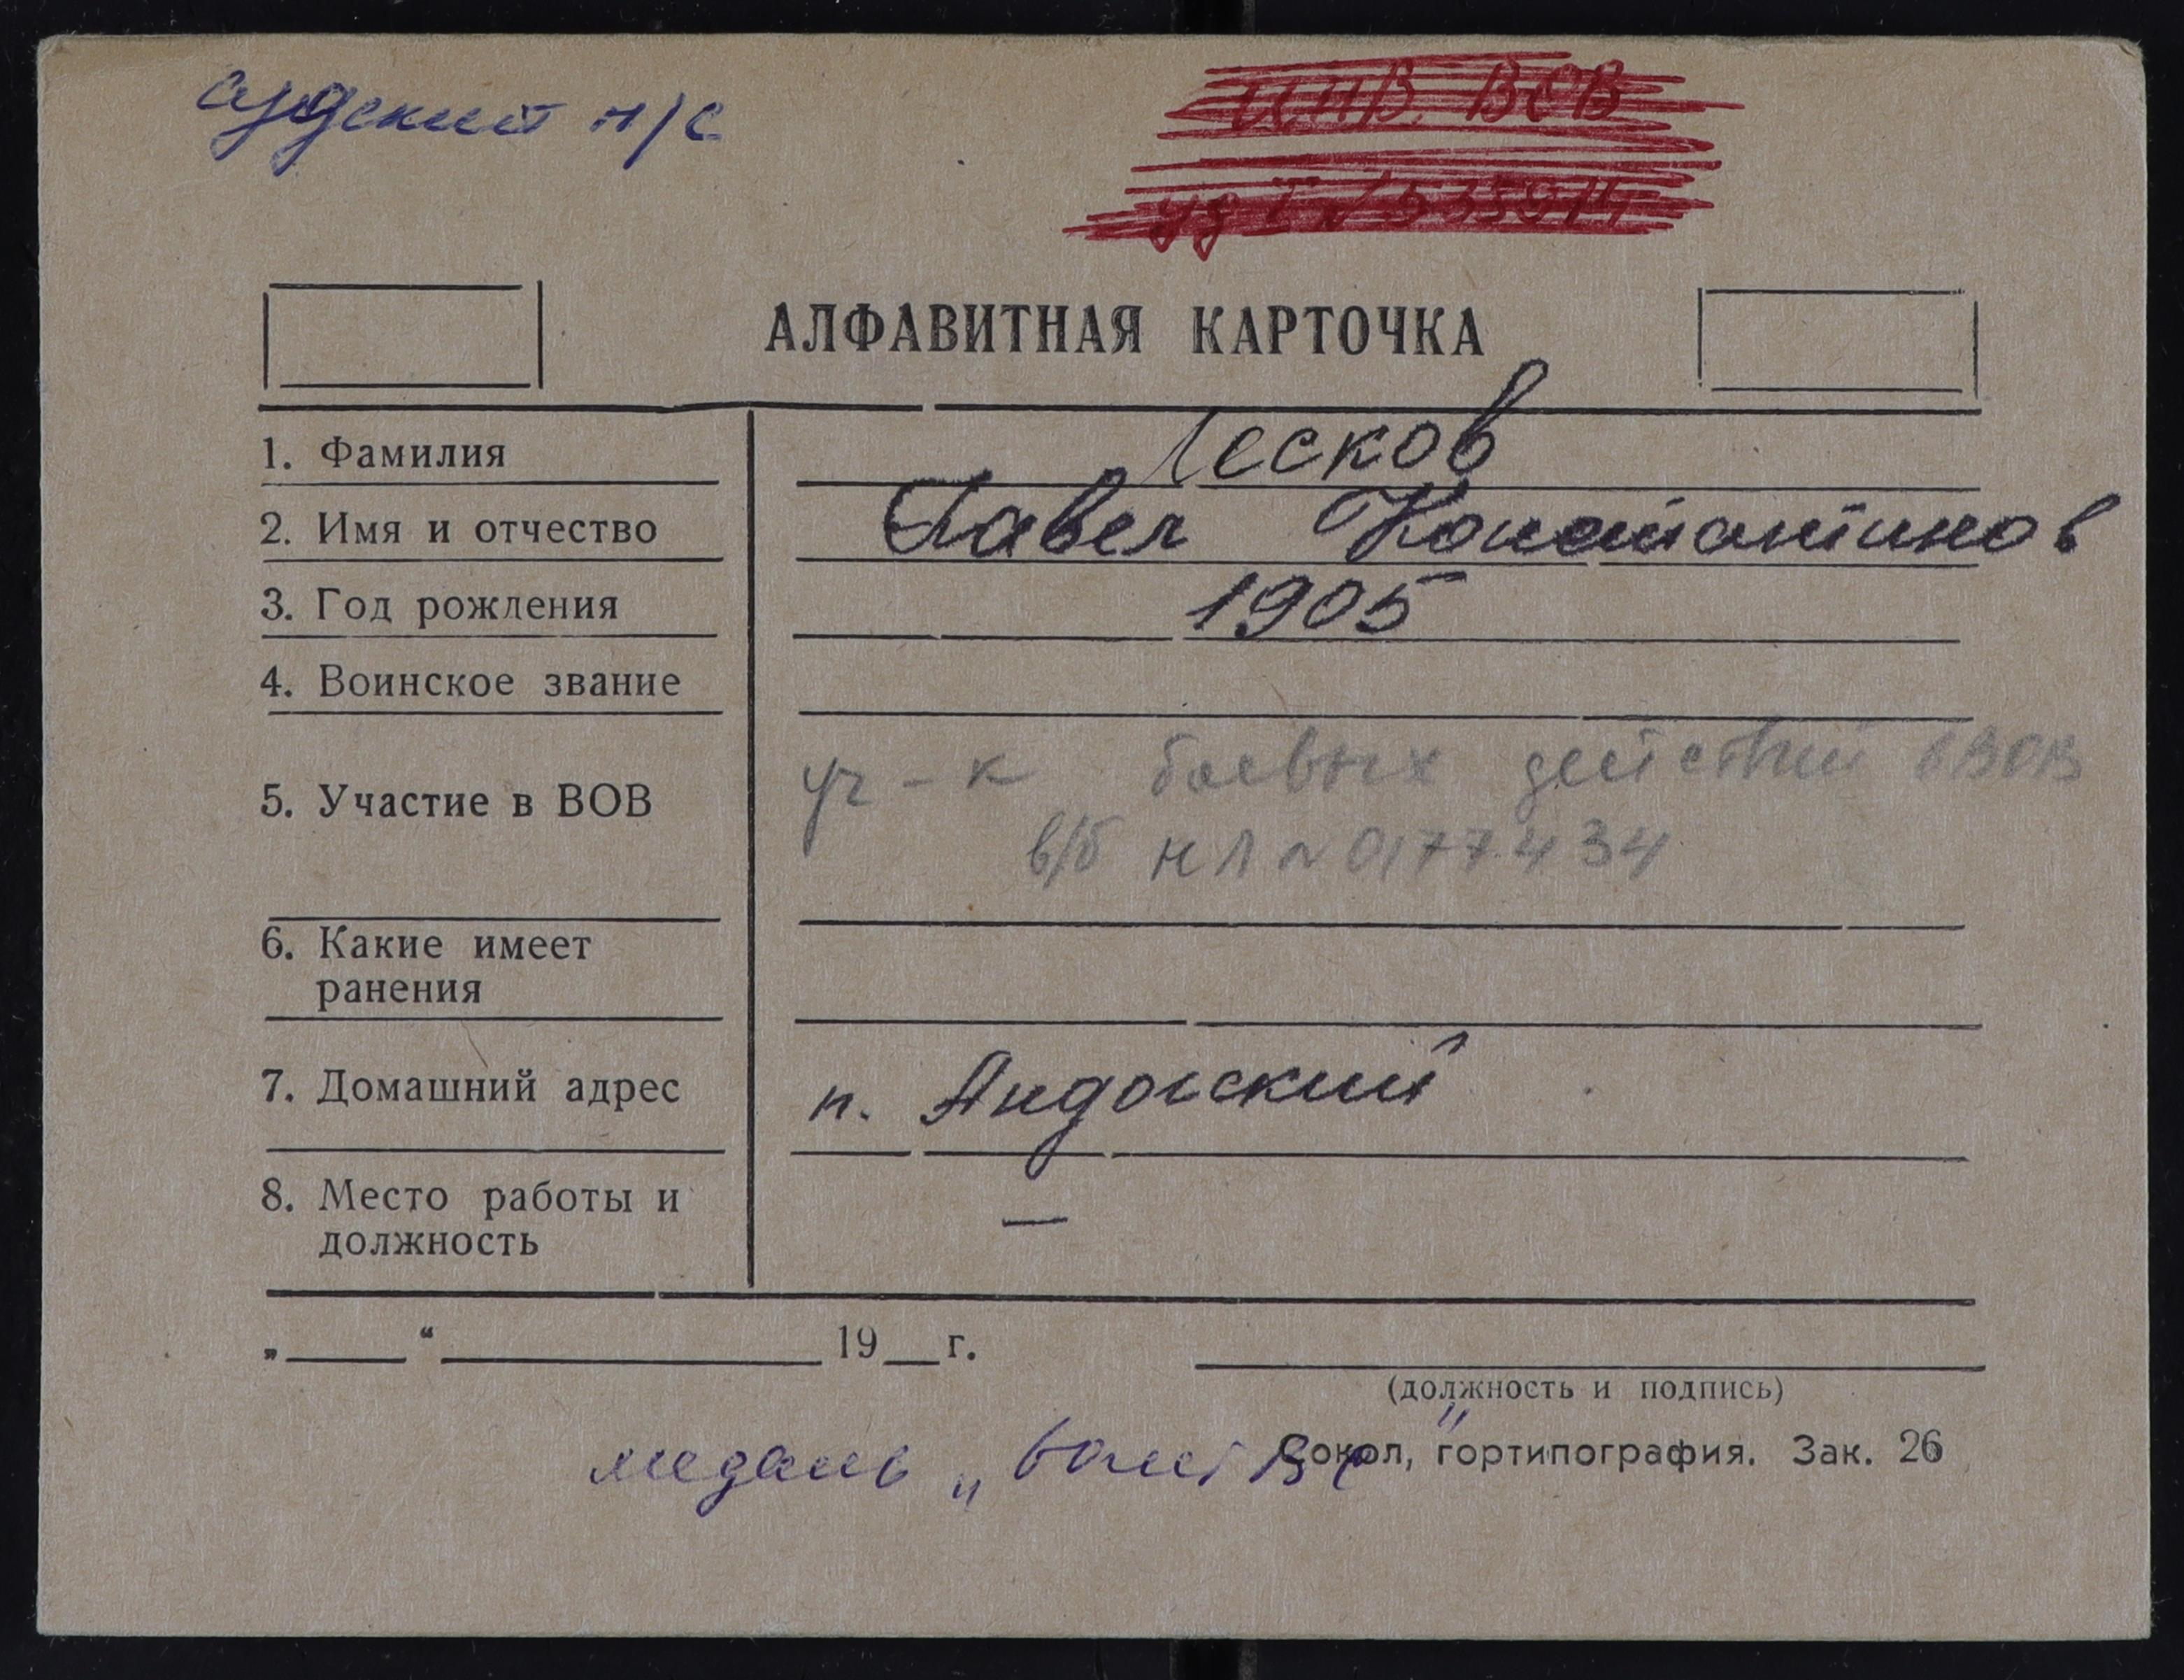 н/с
инв. ВОВ
АЛФАВИТНАЯ КАРТОЧКА
1. Фамилия Лесков
2. Имя и отчество Павел Константинов
3. Год рождения 1905
4. Воинское звание
5. Участие в ВОВ уч-к боевых действий в ВОВ
в/б НЛ № 0177434
6. Какие имеет
ранения
7. Домашний адрес п. Яндогский
8. Место работы и —
должность
„ “ 19 г.
(должность и подпись)
медаль
Сокол, гортипография. Зак. 26